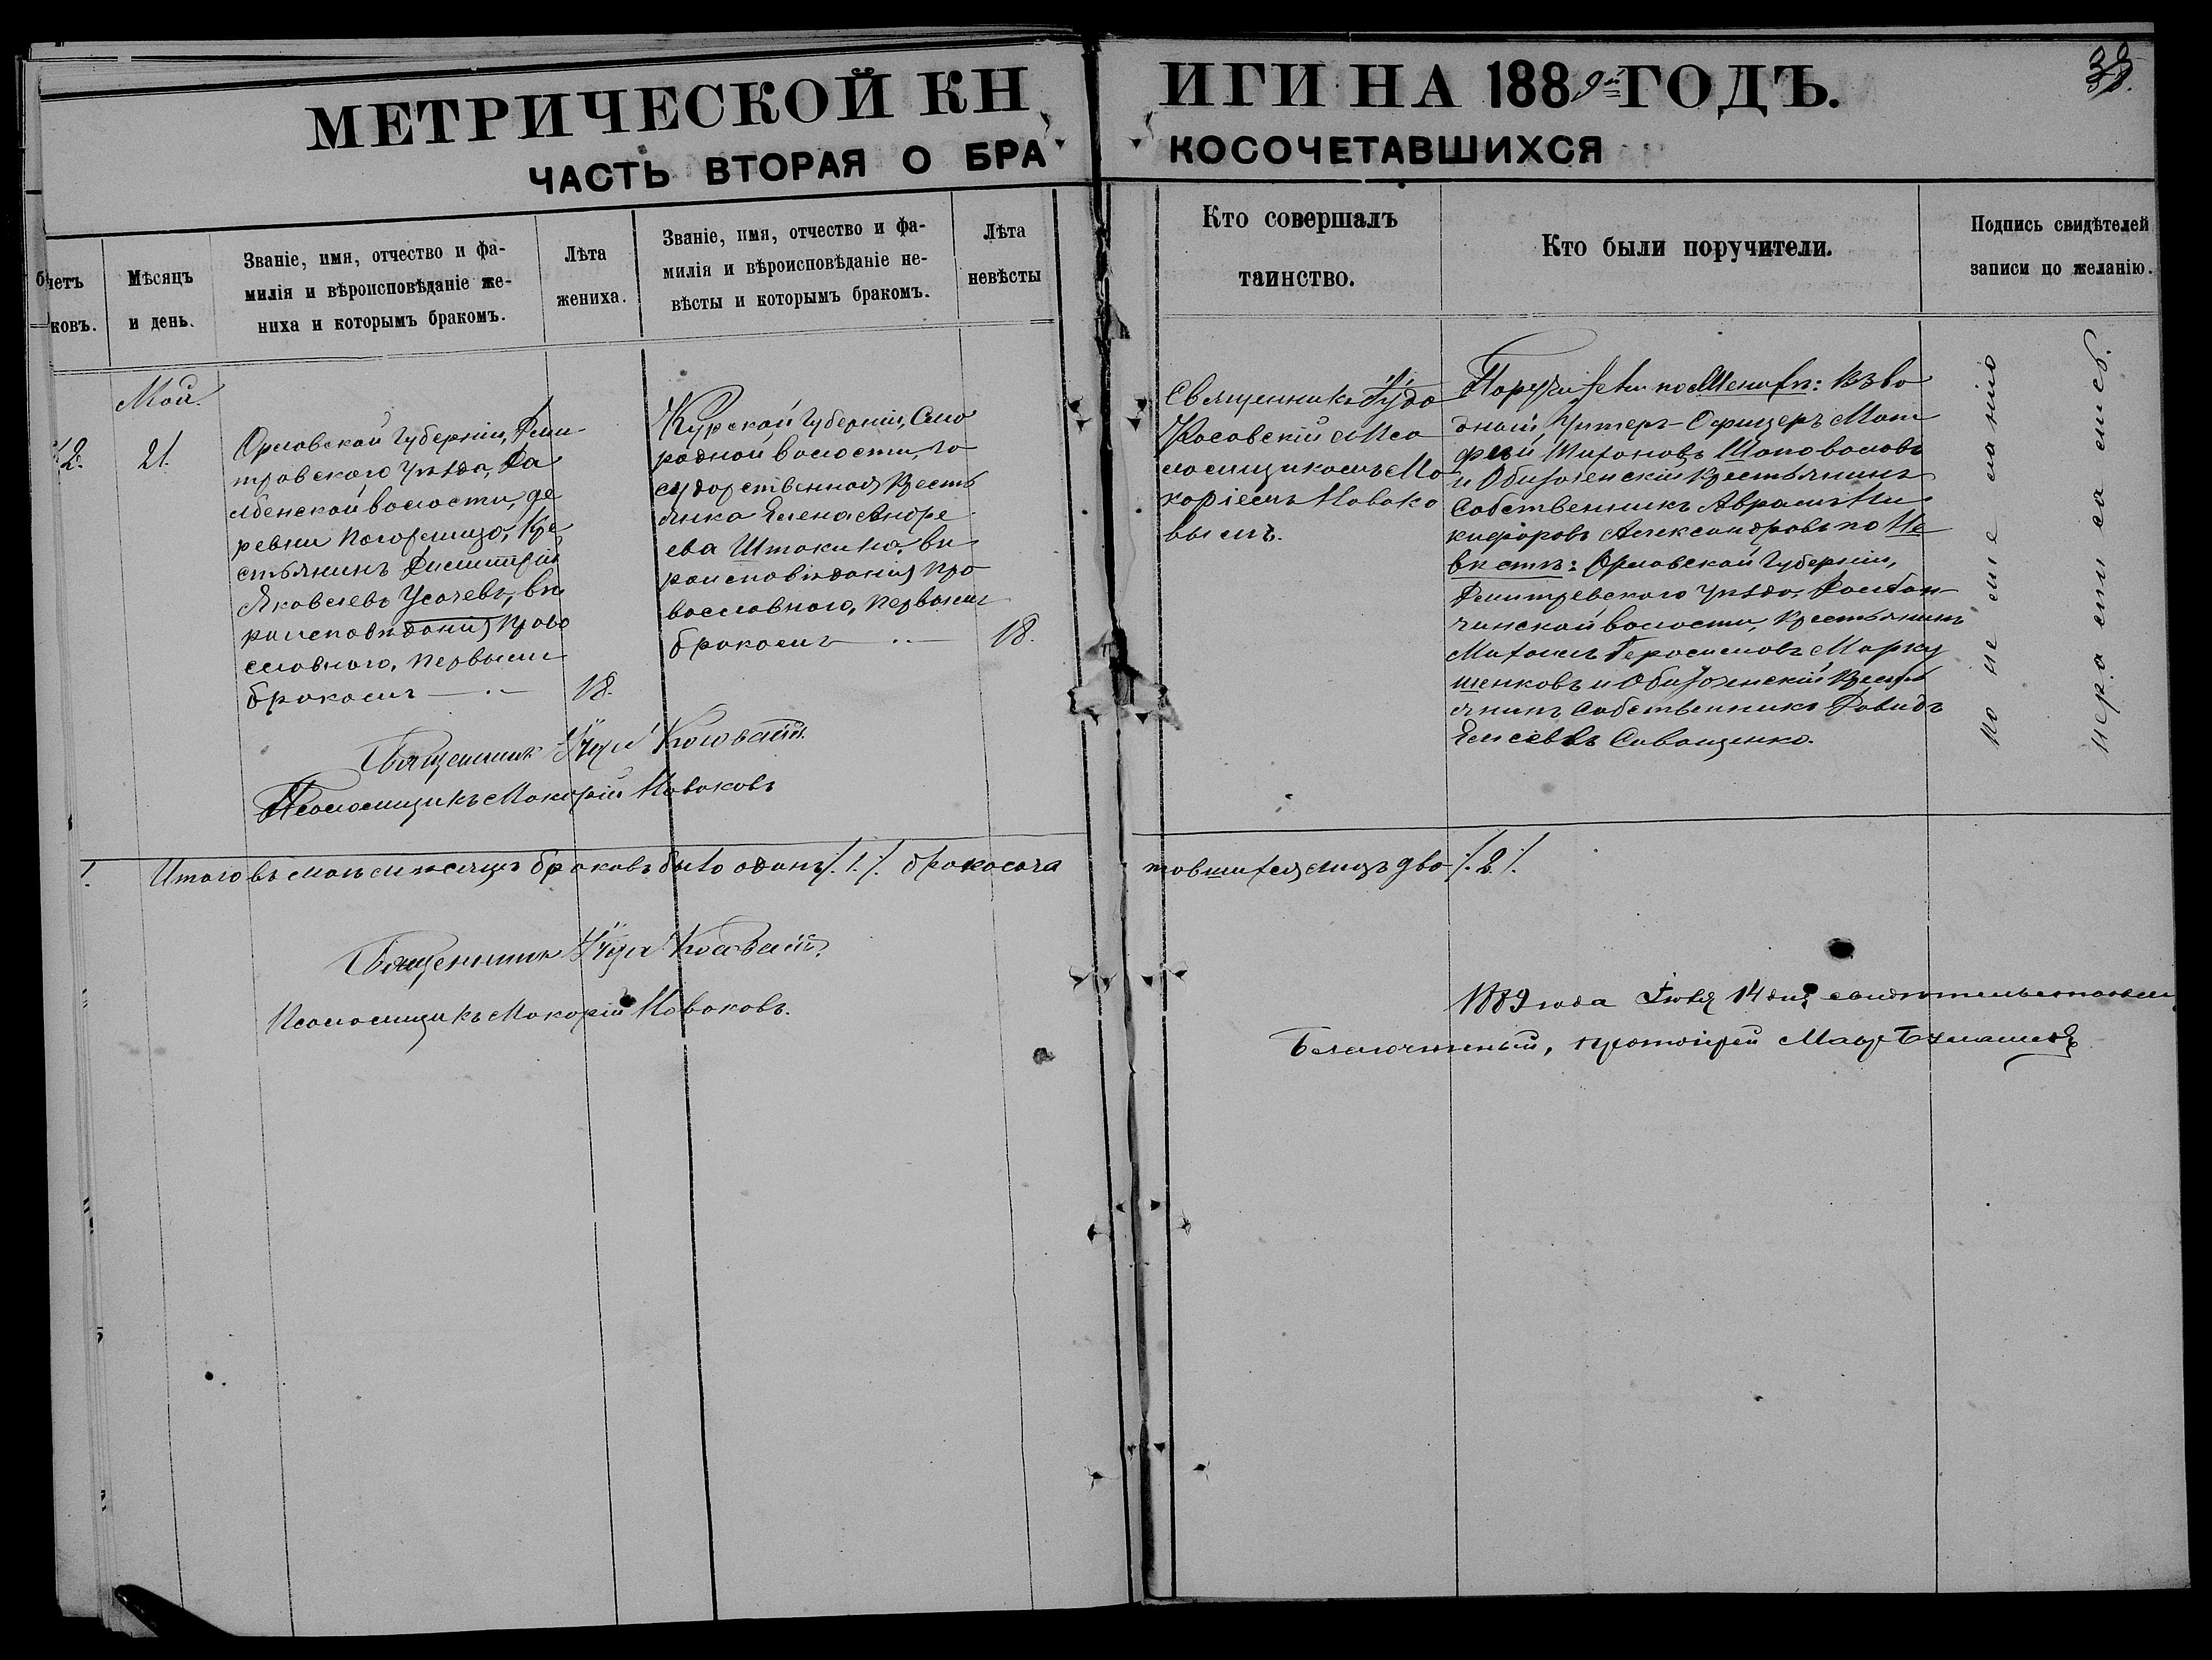 МЕТРИЧЕСКОЙ КН
ИГИ НА 1889й ГОДЪ.
38.
ЧАСТЬ ВТОРАЯ О БРА
КОСОЧЕТАВШИХСЯ
четъ
ковъ.
Мѣсяцъ
и день.
Званіе, имя, отчество и фа-
милія и вѣроисповѣданіе же-
ниха и которымъ бракомъ.
Лѣта
жениха.
Званіе, имя, отчество и фа-
милія и вѣроисповѣданіе не-
вѣсты и которымъ бракомъ.
Лѣта
невѣсты
Кто совершалъ
таинство.
Кто были поручители.
Подпись свидѣтелей
записи по желанію.
Май.
12.
21.
Орловской губерніи, Дми
тровскаго уѣзда,
волости, де
ревни Погорѣлища, Кре
стьянинъ Димитрій
Яковлевъ Усачевъ, вѣ
роисповѣданія Право
славного, первымъ
бракомъ
18.
Курской губерніи, Смо
родной волости, го
сударственная Кресть
янка Елена Андре
ева Штокина, вѣ
роисповѣданія Пра
вославного, первымъ
бракомъ
18.
Священникъ Іуда
Косовскій съ Пса
ломщикомъ Ма
каріемъ Новако
вымъ.
Поручители по Женихѣ: Взво
дный Унтеръ-Офицеръ Мат
фей Тихоновъ Шаповаловъ
и Обиточенскій Крестьянинъ
Собственникъ Аврамъ Ни
кифоровъ Александровъ по Не
вѣстѣ: Орловской Губерніи,
Дмитревского уѣзда,
волости, Крестьянинъ
Михаилъ Герасимовъ Марку
шенковъ и Обиточенскій Крест
янинъ Собственникъ Давидъ
Елисѣевъ Саващенко.
Священникъ Іуда Косовскій
Псаломщикъ Макарій Новаковъ
1.
Итого въ маѣ мѣсяцѣ браковъ было одинъ /.1./. бракосоче
тавшихся лицъ два /.2./.
Священникъ Іуда Косовскій
Псаломщикъ Макарій Новаковъ.
1889 года Іюля 14 дня
Благочинный, протоіерей